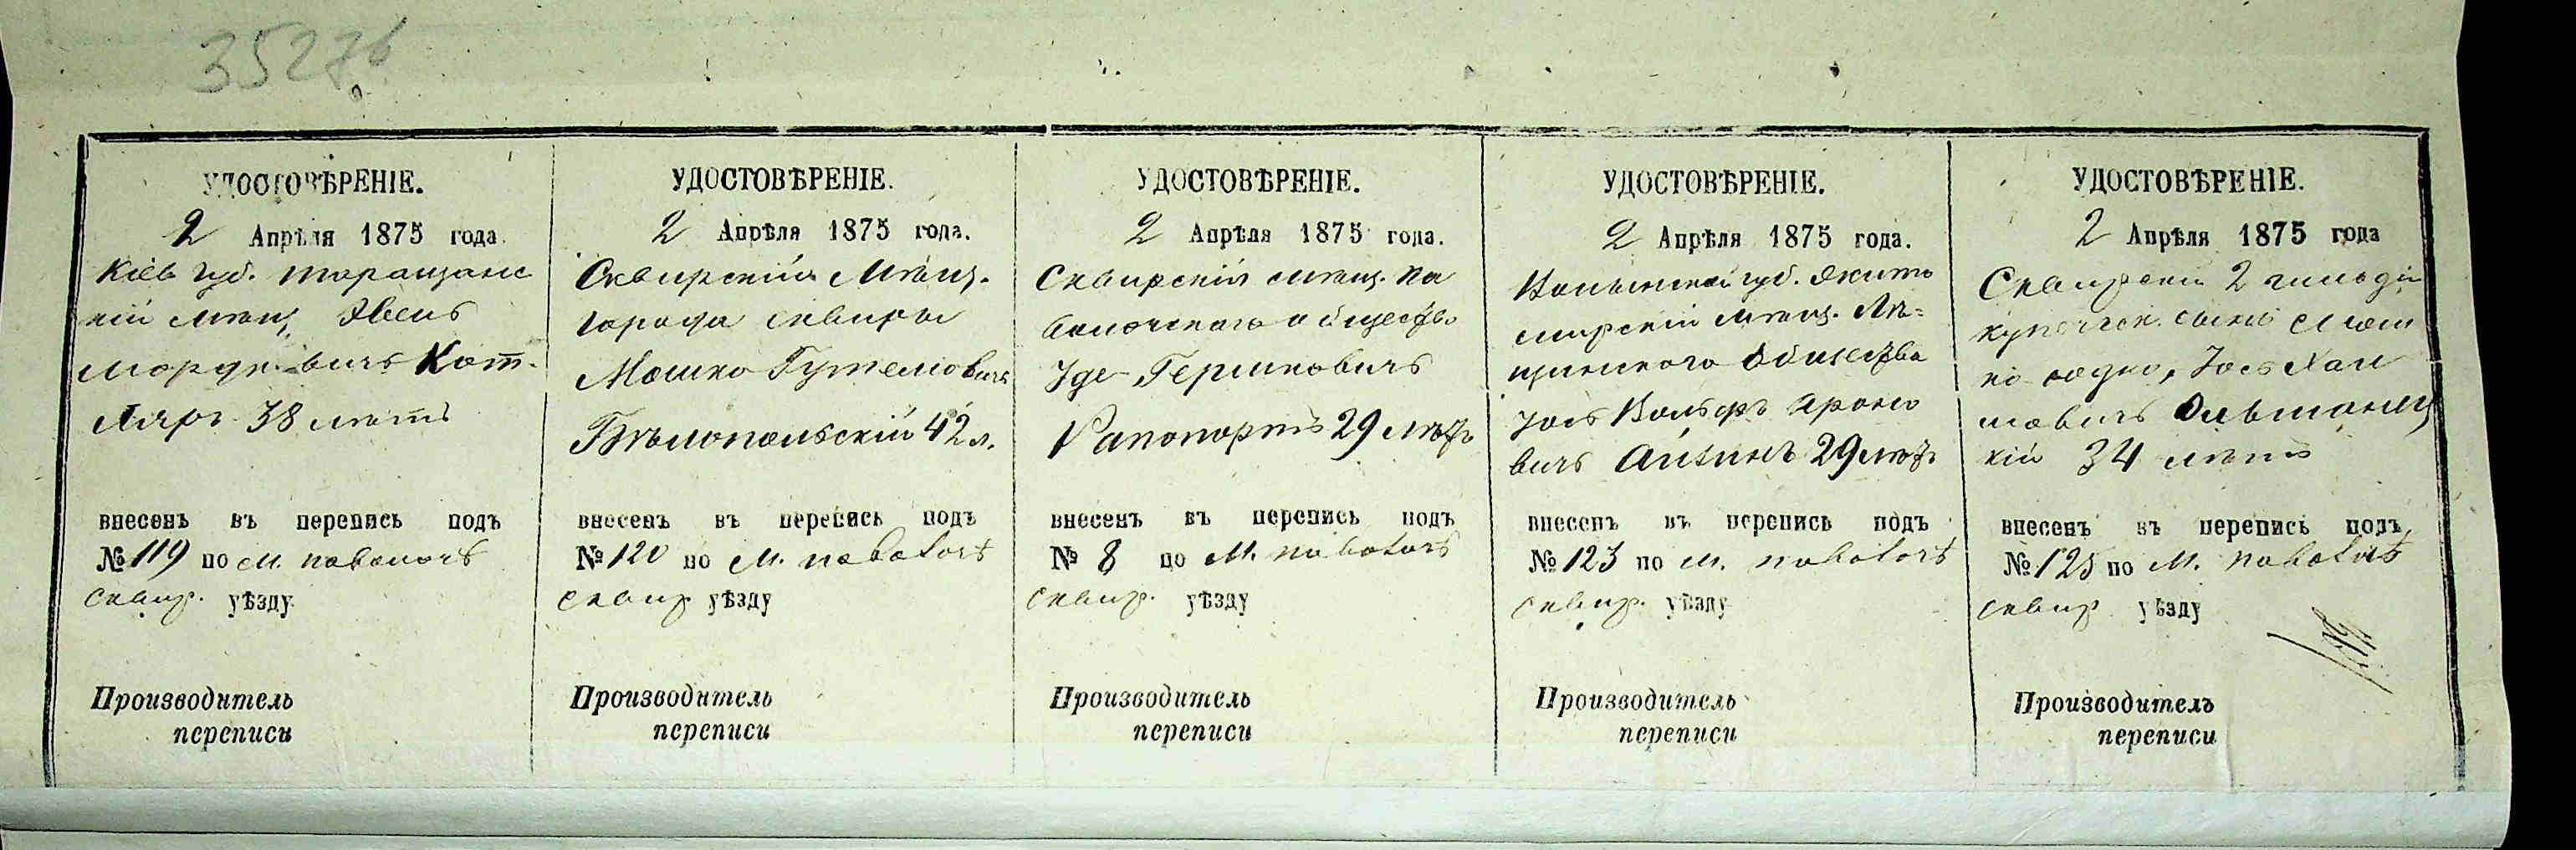 35276
УДОСТОВѢРЕНІЕ.
2 Апрѣля 1875 года.
Кіев губ. таращанс
кій мѣщ. Явель
Мордковичъ Кот-
ляръ 38 лѣтъ
внесенъ въ перепись подъ
№ 119 по м. паволочѣ
сквир. уѣзду
Производитель
переписи
УДОСТОВѢРЕНІЕ.
2 Апрѣля 1875 года.
Сквирскій Мѣщ.
города сквиры
Мошко
Бѣлопольскій 42 л.
внесенъ въ перепись подъ
№ 120 по м. паволочѣ
сквир уѣзду
Производитель
переписи
УДОСТОВѢРЕНІЕ.
2 Апрѣля 1875 года.
Сквирскій мѣщ. па
волочскаго общества
Іде Гершковичъ
Рапопортъ 29 лѣтъ
внесенъ въ перепись подъ
№ 8 по м. паволочѣ
сквир. уѣзду
Производитель
переписи
УДОСТОВѢРЕНІЕ.
2 Апрѣля 1875 года.
Волынской губ. Жито
мирскій мѣщ.
общества
Іось Вольфъ Ароно
вичъ 29 лѣтъ
внесенъ въ перепись подъ
№ 123 по м. паволочѣ
сквир. уѣзду
Производитель
переписи
УДОСТОВѢРЕНІЕ.
2 Апрѣля 1875 года
Сквирскій 2 гильдіи
купеческ. сынъ Мош
ко Іось Хаи
мовичъ Ольшанец
кій 34 лѣтъ
внесенъ въ перепись подъ
№ 125 по м. паволочѣ
сквир уѣзду
Производитель
переписи